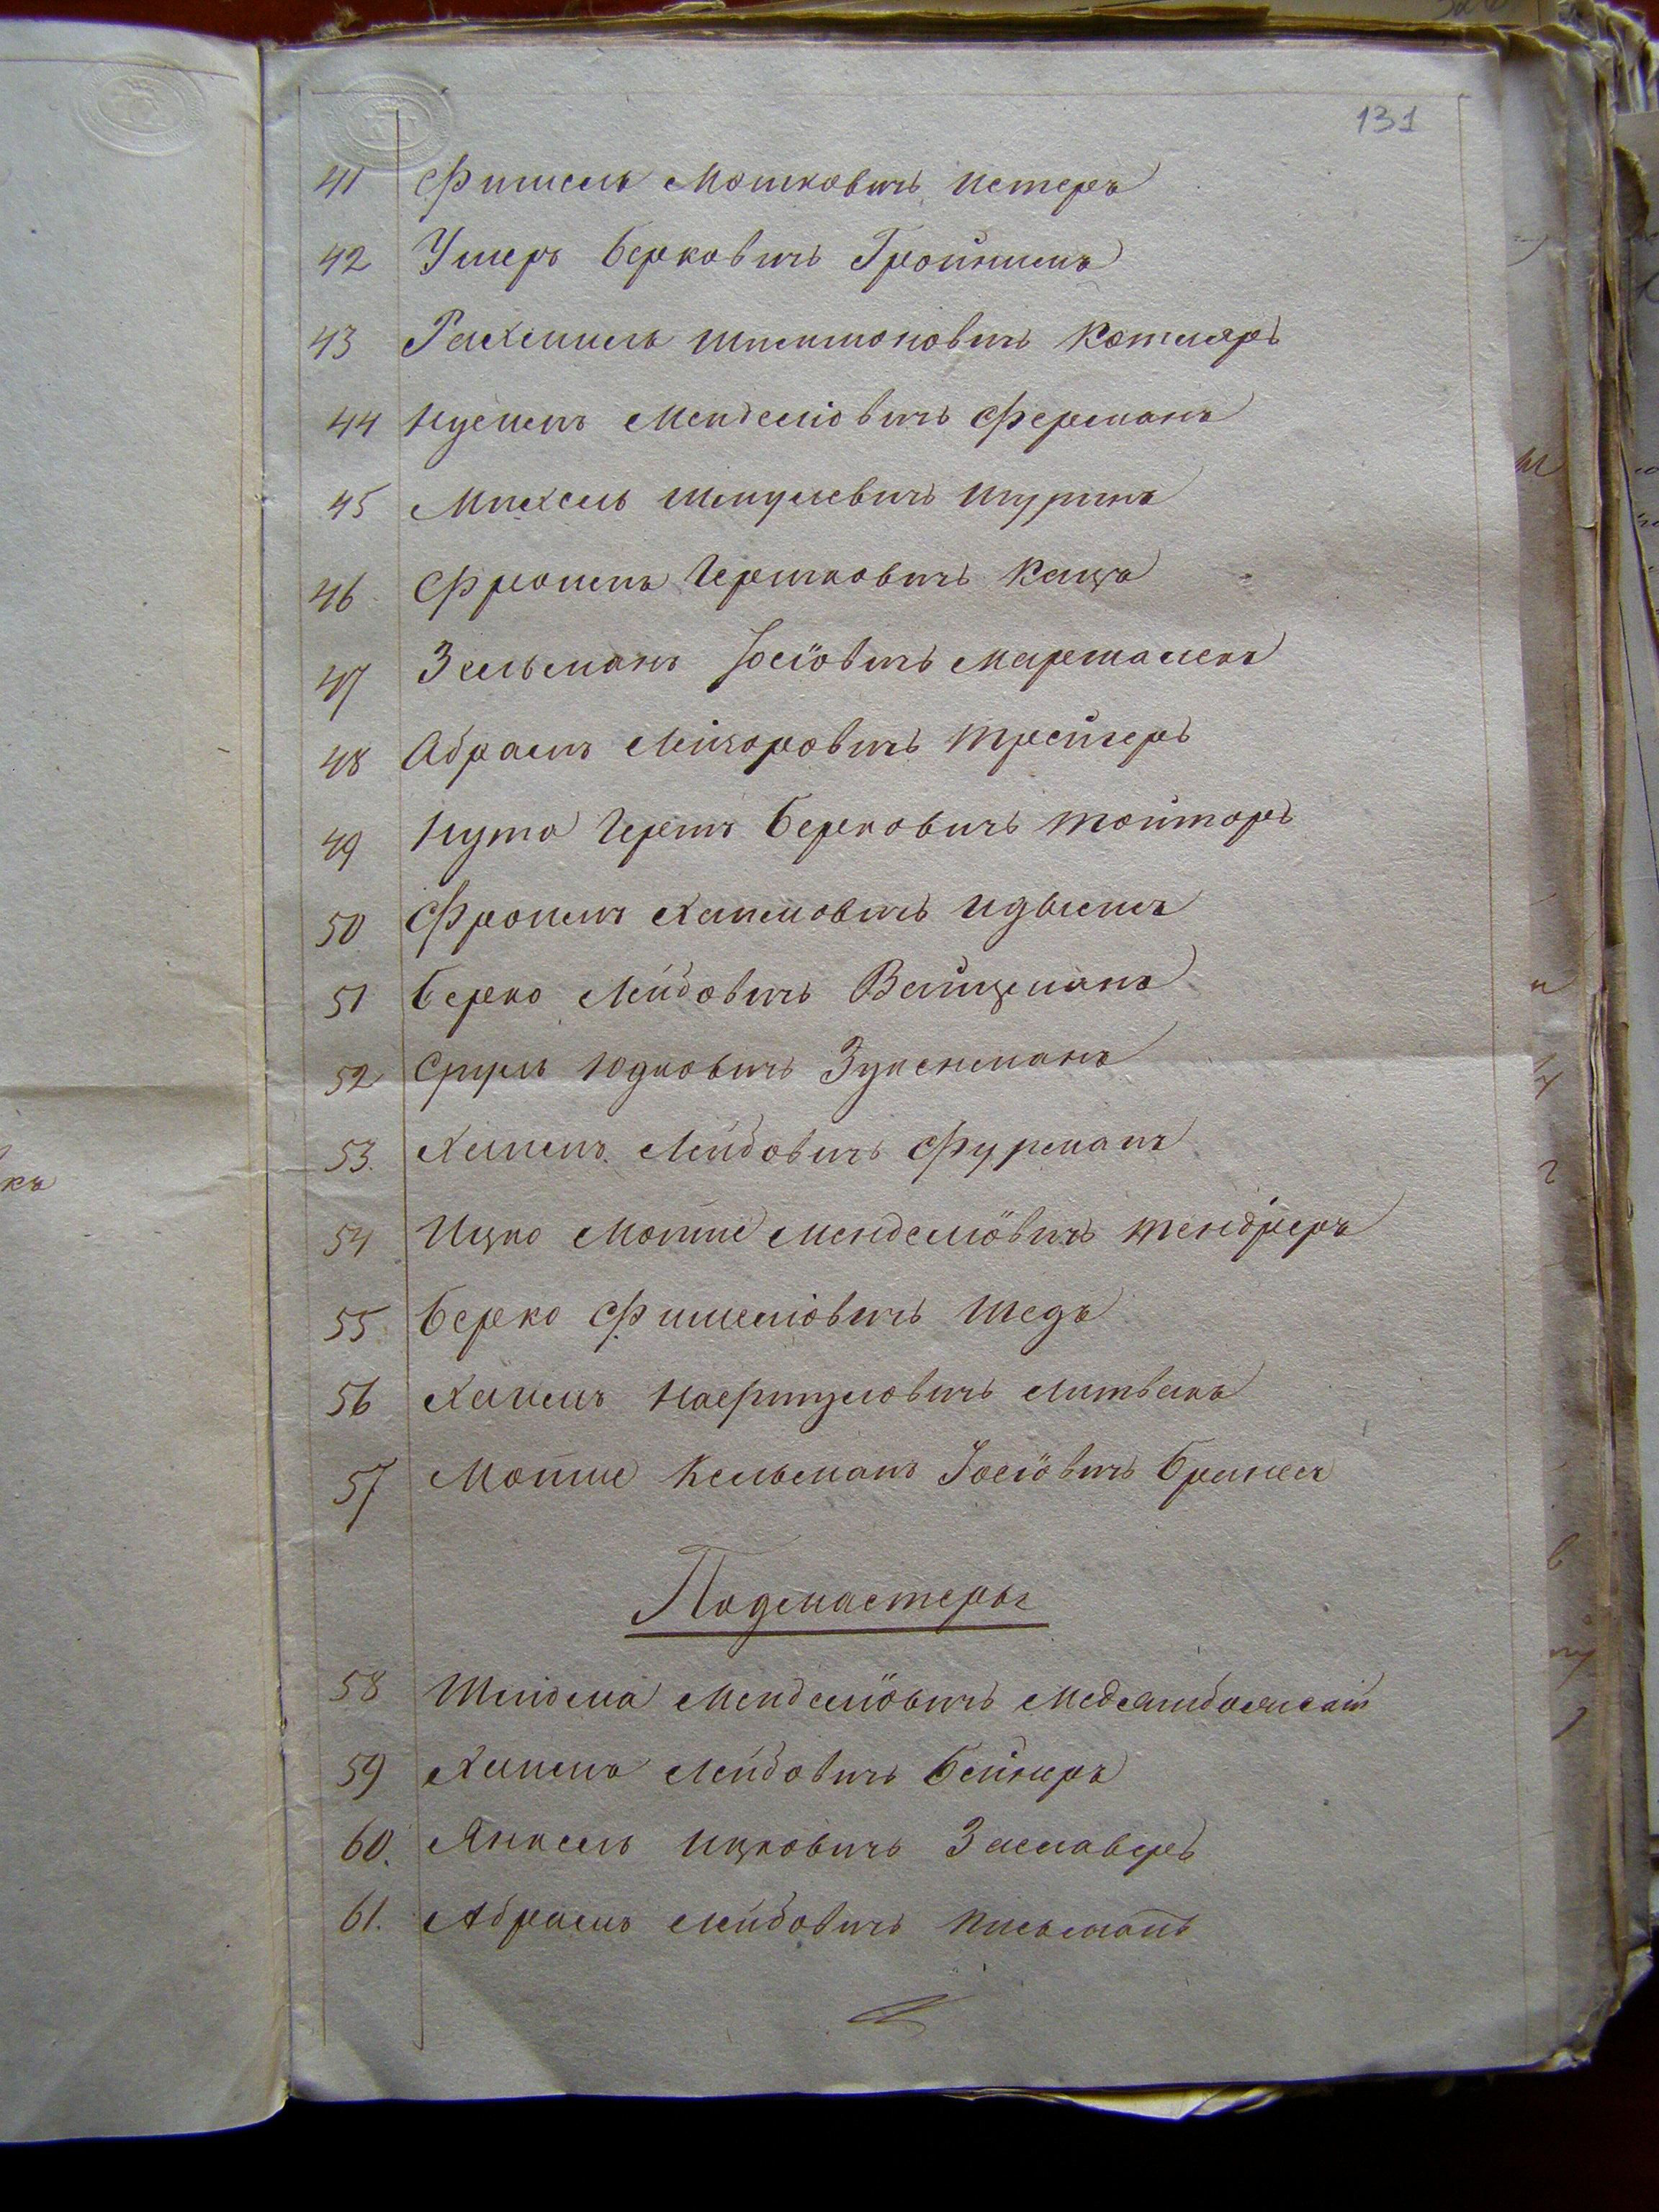 131
41 Фишель Мошковичъ Нестеръ
42 Ушеръ Берковичъ Гройнимъ
43 Рахмиль Шлимоновичъ Котляръ
44 Нусенъ Менделіовичъ Ферманъ
45 Михель Шмулевичъ Шуринъ
46 Фроимъ Гершковичъ Кацъ
47 Зельманъ Іосіовичъ Маршалекъ
48 Абрамъ Лейзоровичъ Трейгеръ
49 Нута Гершъ Берковичъ Тойторъ
50 Фроимъ Хаимовичъ
51 Берко Лейбовичъ Вайцманъ
52 Сруль Юдковичъ Зукенманъ
53. Хаимъ Лейбовичъ Фурманъ
54 Ицко Мотие Менделіовичъ Тендлеръ
55 Берко Фишеліовичъ Шедъ
56 Хаимъ Нафтуловичъ Литвакъ
57 Мотие Кельманъ Іосіовичъ
Подмастеры
58 Шлиома Менделіовичъ
59 Хаимъ Лейбовичъ
60. Янкель Ицковичъ Заславеръ
61. Абрамъ Лейбовичъ Письманъ
къ